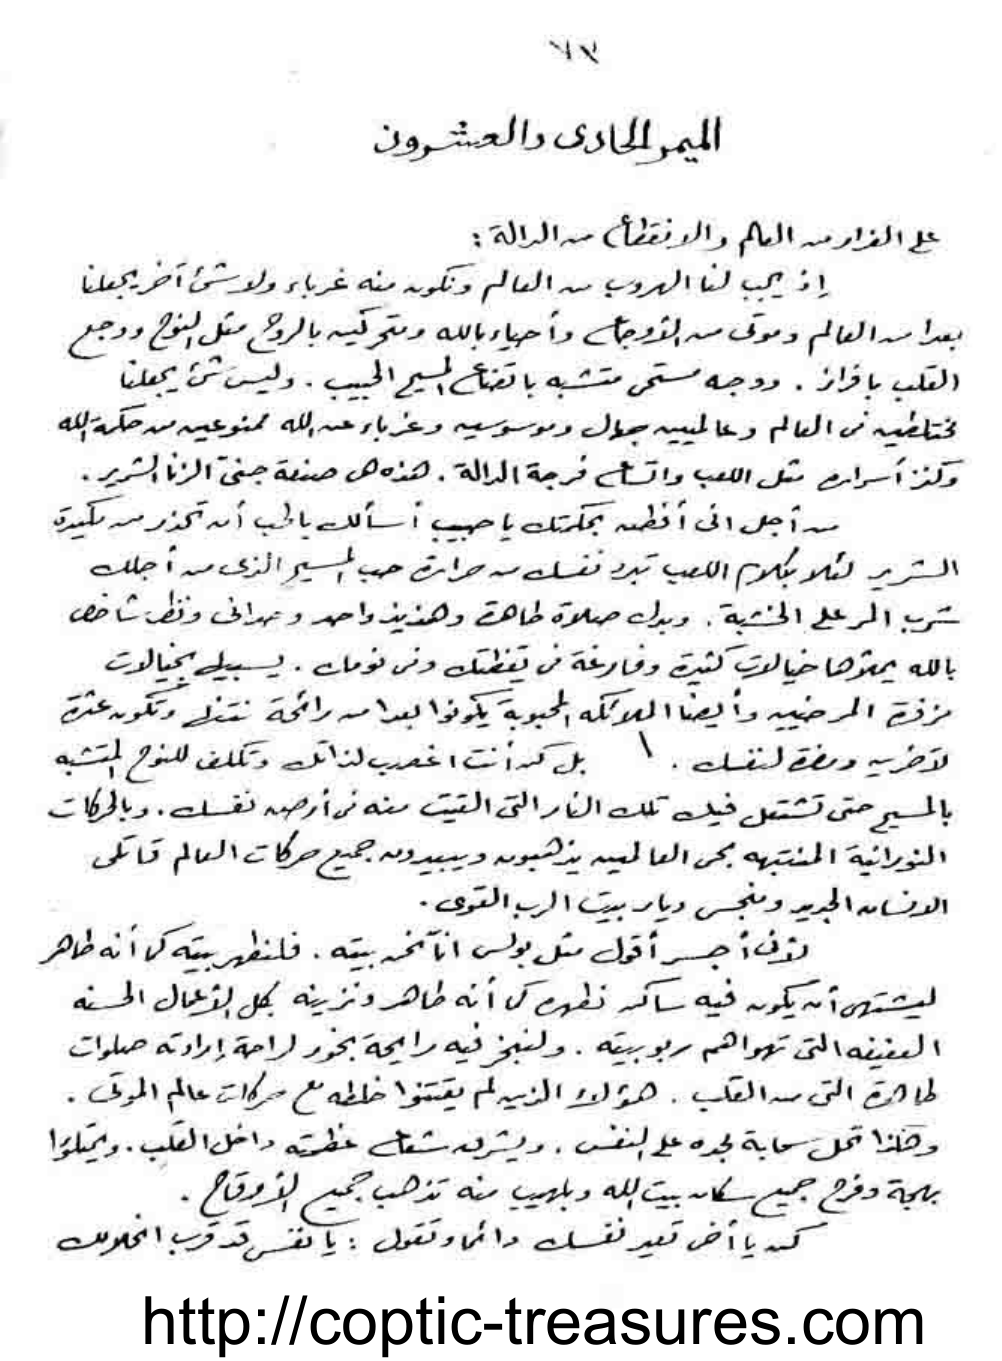 ٧٣
الميمر الحادى والعشرون
على الفرار من العالم والانقطاع من الدالة :
إذ يجب لنا الهروب من العالم ونكون منه غرباء ولا شئ آخر يجعلنا
بعدا من العالم وموتى من الأوجاع وأحياء بالله ومتحركين بالروح مثل النوح ووجع
القلب بافراز . ووجه مستحى متشبه باتضاع المسيح الحبيب . وليس شئ يجعلنا
مختلطين فى العالم وعالميين جهال وموسوسين وغرباء عن الله ممنوعين من حكمة الله
وكنز أسراره مثل اللعب واتساع فرجة الدالة . هذه هى صنعة جنى الزنا الشرير .
من أجل انى أفطن بحكمتك يا حبيب أسألك بالحب أن تحذر من مكيدة
الشرير لئلا بكلام اللعب تبرد نفسك من حرارة حب المسيح الذى من أجلك
شرب المر على الخشبة . وبدل صلاة طاهرة وهذيذ واحد وحدانى ونظر شاخص
بالله يملؤها خيالات كثيرة وفارغة فى يقظتك وفى نومك . يسبيك بخيالات
مزفرة المرضيين وأيضا الملائكه المحبوبة يكونوا بعدا من رائحة نتنها وتكون عثرة
لآخرين ومضرة لنفسك . \ بل كن أنت اغصب لذاتك وتكلف للنوح المتشبه
بالمسيح حتى تشتعل فيك تلك النار التى القيت منه فى أرض نفسك . وبالحركات
النورانية المنتبهه بحس العالميين يذهبون ويبيدون جميع حركات العالم قاتلى
الانسان الجديد ومنجسى ديار بيت الرب القوى .
لأنى أجسر أقول مثل بولس اننا نحن بيته . فلنطهر بيته كما أنه طاهر
ليشتهى أن يكون فيه ساكن نطهره كما أنه طاهر ونزينه بكل الأعمال الحسنه
العفيفه التى تهواهم ربوبيته . ولنبخر فيه رايحة بخور لراحة إرادته صلوات
طاهرة التى من القلب . هؤلاء الذين لم يقتنوا خلطه مع حركات عالم الموتى .
وهكذا تحل سحابة مجده على النفس . ويشرق شعاع عظمته داخل القلب . ويمتلئوا
بهجة وفرح جميع سكان بيت الله وبلهيب منه تذهب جميع الأوقاح .
كن يا أخى تعير نفسك دائما وتقول : يا نفسى قد قرب انحلالك
http://coptic-treasures.com